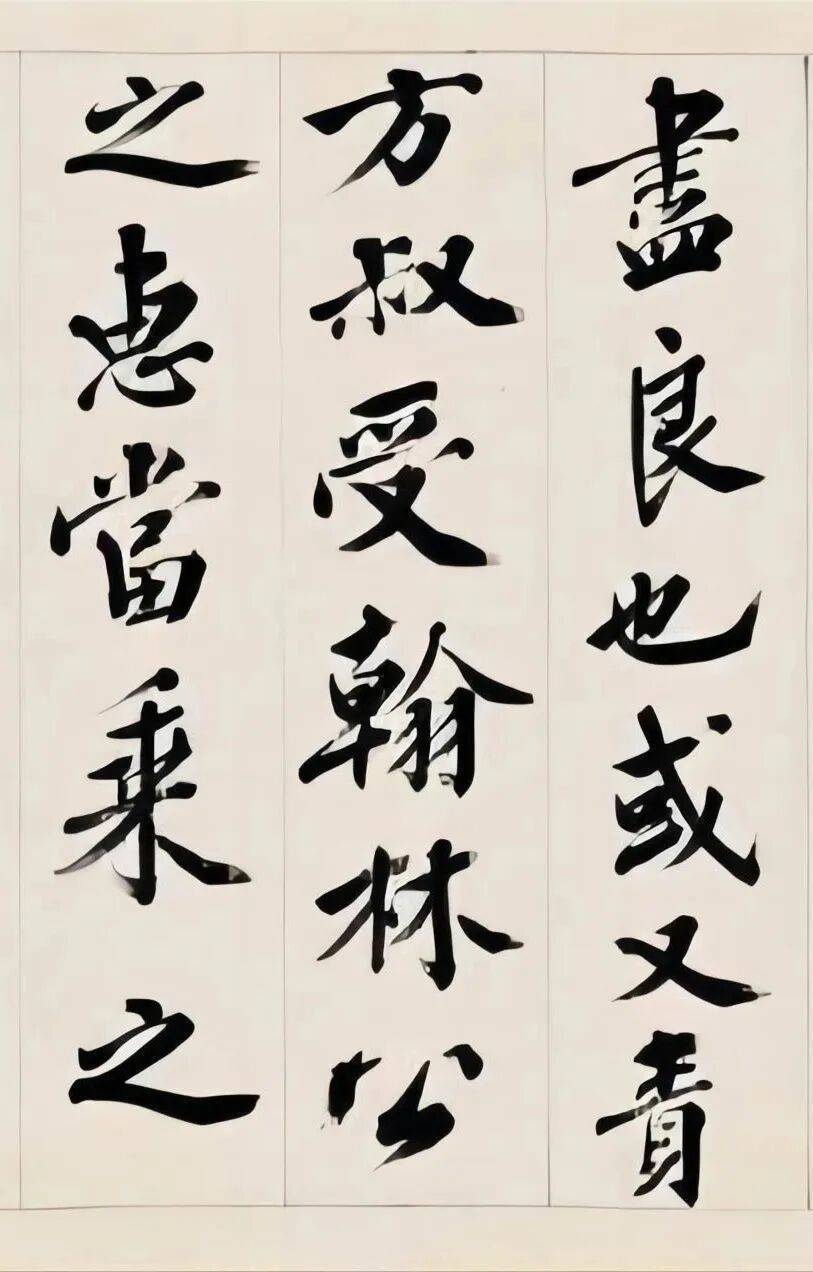 盡良也或又責
方叔受翰林公
之惠當乘之